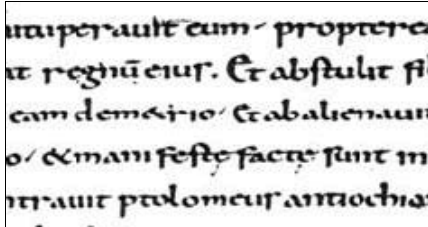 uituperauit eum · propterea
it regnū eius. Et abstulit fi
eam demetrio · et abalienauit
o · et manifestę factę sunt in
ntrauit ptolomeus antiochia